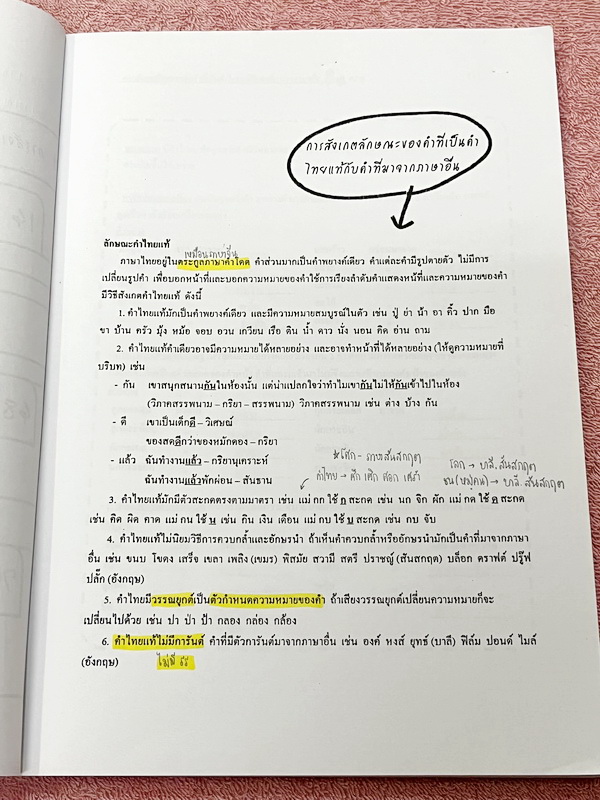 การสังเกตลักษณะของคำที่เป็นคำ
ไทยแท้กับคำที่มาจากภาษาอื่น
ลักษณะคำไทยแท้
ภาษาไทยอยู่ในตระกูลภาษาคำโดด คำส่วนมากเป็นคำพยางค์เดียว คำแต่ละคำมีรูปตายตัว ไม่มีการ
เปลี่ยนรูปคำ เพื่อบอกหน้าที่และบอกความหมายของคำใช้การเรียงลำดับคำแสดงหน้าที่และความหมายของคำ
มีวิธีสังเกตคำไทยแท้ ดังนี้
1. คำไทยแท้มักเป็นคำพยางค์เดียว และมีความหมายสมบูรณ์ในตัว เช่น ปู่ ย่า น้า อา คิ้ว ปาก มือ
ขา บ้าน ครัว มุ้ง หม้อ จอบ อวน เกวียน เรือ ดิน น้ำ ดาว นั่ง นอน คิด อ่าน ถาม
2. คำไทยแท้คำเดียวอาจมีความหมายได้หลายอย่าง และอาจทำหน้าที่ได้หลายอย่าง (ให้ดูความหมายที่
บริบท) เช่น
- กัน เขาสนุกสนานกันในห้องนั้น แต่น่าแปลกใจว่าทำไมเขากันไม่ให้กันเข้าไปในห้อง
(วิภาคสรรพนาม – กริยา – สรรพนาม) วิภาคสรรพนาม เช่น ต่าง บ้าง กัน
- ดี เขาเป็นเด็กดี – วิเศษณ์
ของสดดีกว่าของหมักดอง – กริยา
- แล้ว ฉันทำงานแล้ว – กริยานุเคราะห์
ฉันทำงานแล้วพักผ่อน – สันธาน
*โศก - ภาษาสันสกฤต
คำไทย → ศึก เศิก ศอก เศร้า
โลก → บาลี. สันสกฤต
ชน (หมู่คน) → บาลี. สันสกฤต
3. คำไทยแท้มักมีตัวสะกดตรงตามมาตรา เช่น แม่ กก ใช้ ก สะกด เช่น นก จิก ผัก แม่ กด ใช้ ด สะกด
เช่น คิด ผิด คาด แม่ กน ใช้ น เช่น กิน เงิน เดือน แม่ กบ ใช้ บ สะกด เช่น กบ จับ
4. คำไทยแท้ไม่นิยมวิธีการควบกล้ำและอักษรนำ ถ้าเห็นคำควบกล้ำหรืออักษรนำมักเป็นคำที่มาจากภาษา
อื่น เช่น ขนบ โขดง เสร็จ เขลา เพลิง (เขมร) พิสมัย สวามี สตรี ปราชญ์ (สันสกฤต) บล็อก คราฟต์ ปรู๊ฟ
ปลั๊ก (อังกฤษ)
5. คำไทยมีวรรณยุกต์เป็นตัวกำหนดความหมายของคำ ถ้าเสียงวรรณยุกต์เปลี่ยนความหมายก็จะ
เปลี่ยนไปด้วย เช่น ปา ป่า ป้า กลอง กล่อง กล้อง
6. คำไทยแท้ไม่มีการันต์ คำที่มีตัวการันต์มาจากภาษาอื่น เช่น องค์ หงส์ ยุทธ์ (บาลี) ฟิล์ม ปอนด์ ไมล์
(อังกฤษ) ไม่มี รร